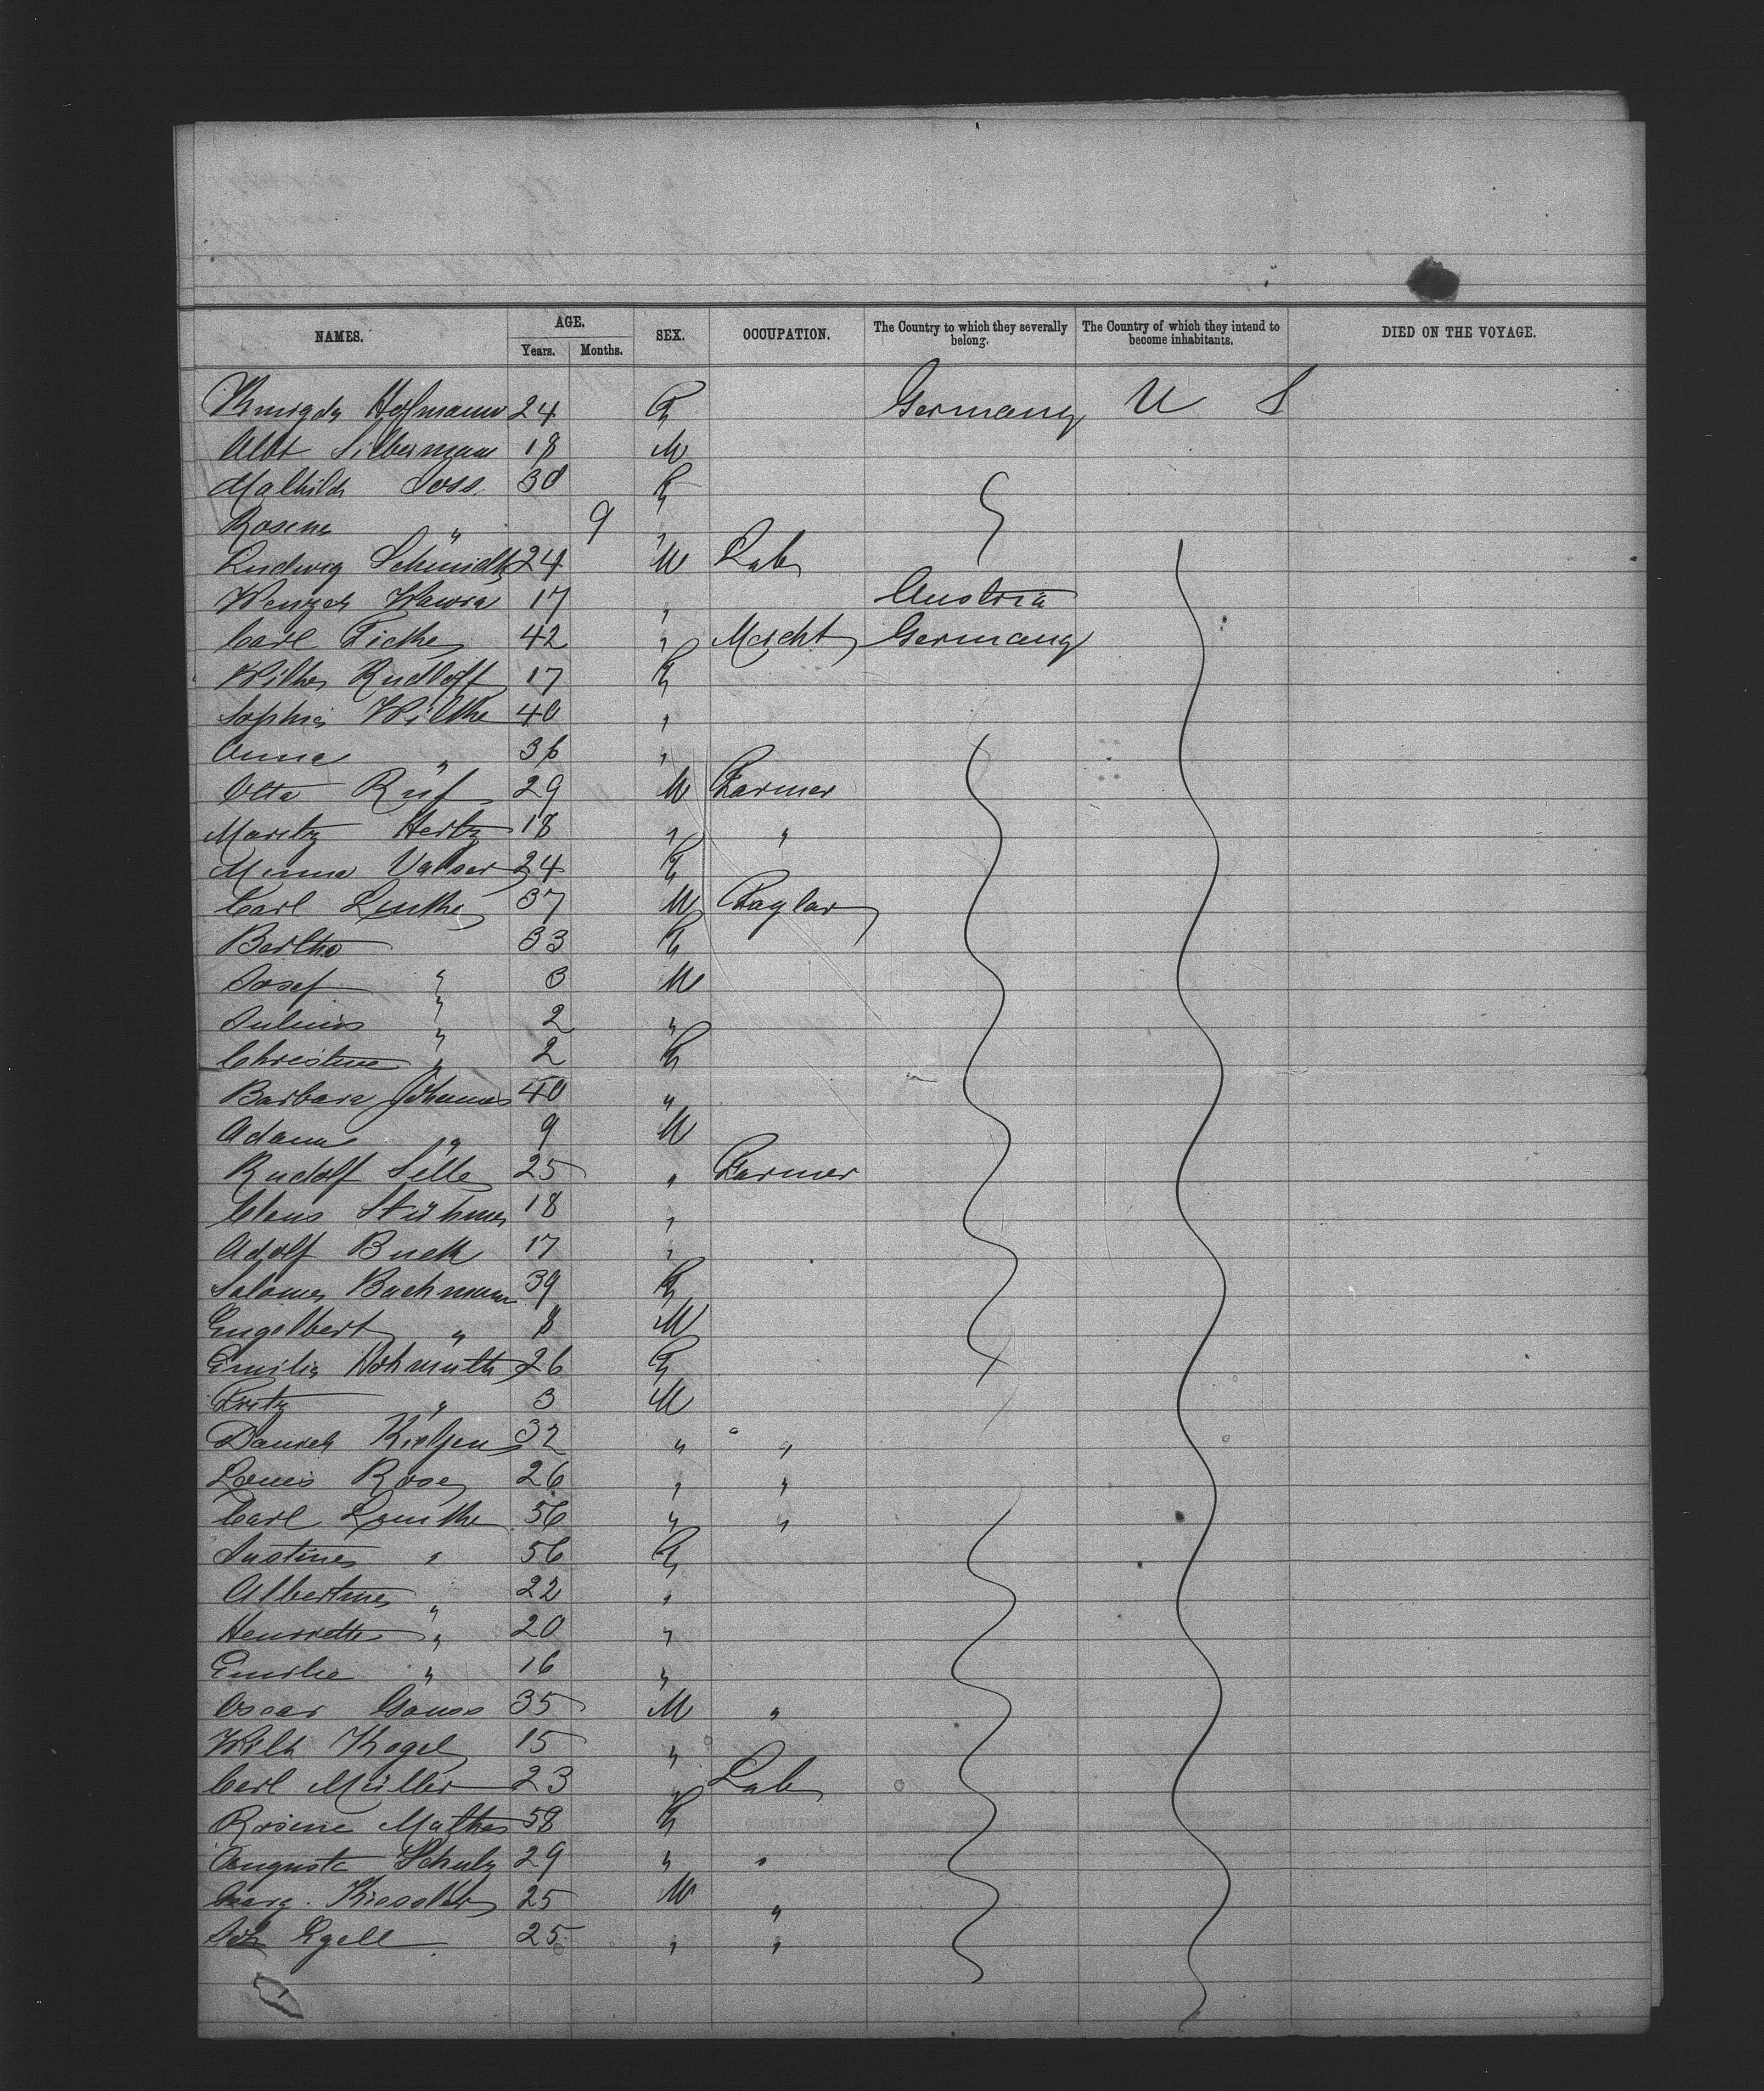 NAMES. AGE. Years. Months. SEX. OCCUPATION. The Country to which they severally belong. The Country of which they intend to become inhabitants. DIED ON THE VOYAGE.
Hofmann 24 F Germany U S
Albt Silbermann 18 M
Mathild Joss 30 F
Rosine " 9 "
Ludwig Schmidt 24 M Lab
Wenzel Wawra 17 " Austria
Carl Ficke 42 " Mercht Germany
Wilhe Rudloff 17 F
Sophie Wilke 40 "
Anna " 36 "
Otto Ruf 29 M Farmer
Moritz Hertz 18 " "
Minna 24 F
Carl Lemke 37 M Taylor
Bertha 33 F
Josef " 3 M
Julius " 2 "
Christine " 2 F
Barbara Johannes 40 "
Adam " 9 M
Rudolf Selle 25 " Farmer
Claus Stühmer 18 "
Adolf Buck 17 "
Salome Bachmann 39 F
Engelbert " 8 M
Emilie Wohmuth 26 F
Fritz " 3 M
Daniel 32 " "
Louis Rose 26 " "
Carl Lemke 56 " "
Justine " 56 F
Albertine " 22 "
Henriette " 20 "
Emilie " 16 "
Oscar Gauss 35 M "
Wilh Kogel 15 "
Carl Müller 23 " Lab
Rosine Mathes 58 F
Auguste Schulz 29 " "
Georg. Kiessler 25 M "
Joh Egell 25 " "